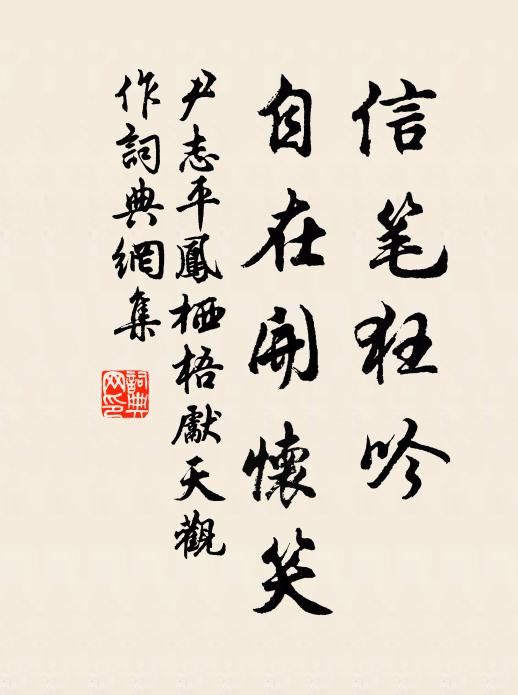 信笔狂吟
自在開懷笑
尹志平鳳栖梧獻天觀
作詞典網集
詞典
網印